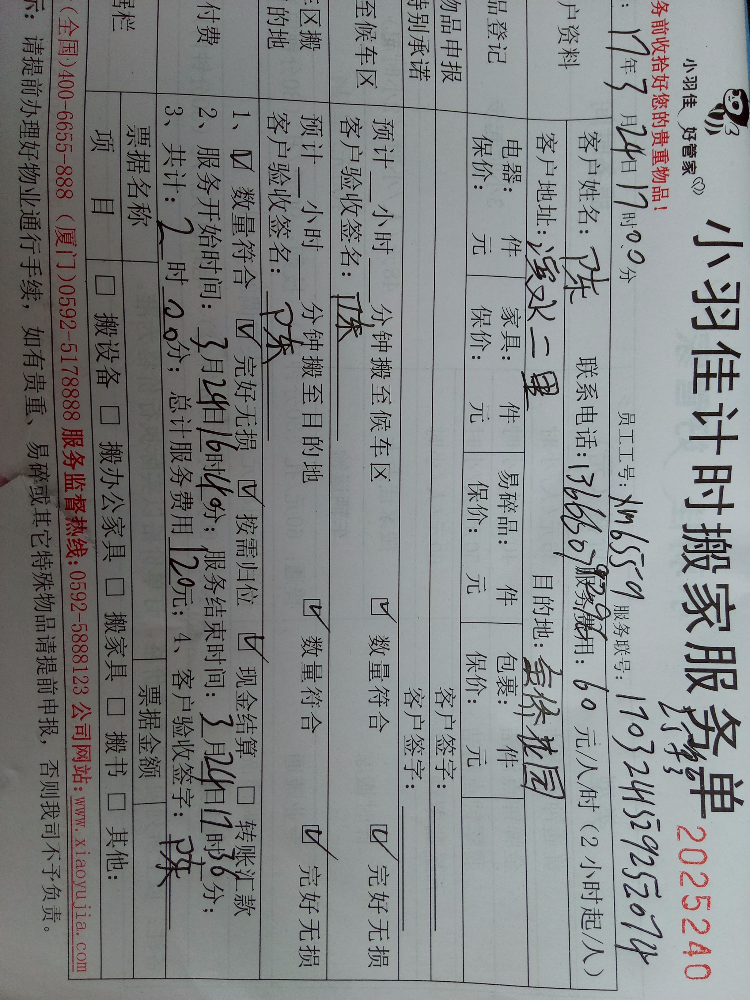 小羽佳 好管家
小羽佳计时搬家服务单 2025240
务前收拾好您的贵重物品!
员工工号: xm6559 服务联号: 170324152925207
: 17年3月24日17时00分
户资料
客户姓名: 陈 联系电话: 服务费用: 60 元/人/时(2小时起/人)
客户地址: 溪水一里 目的地: 金桥花园
品登记
电器: 件 家具: 件 易碎品: 件 包裹: 件
保价: 元 保价: 元 保价: 元 保价: 元
物品申报 客户签字:
特别承诺 客户签字:
至候车区
预计__小时__分钟搬至候车区 ☑ 数量符合 ☑ 完好无损
客户验收签名: 陈
车区搬
的地
预计__小时__分钟搬至目的地 ☑ 数量符合 ☑ 完好无损
客户验收签名: 陈
付费
1、☑ 数量符合 ☑ 完好无损 ☑ 按需归位 ☑ 现金结算 □ 转账汇款
2、服务开始时间: 3月24日16时40分; 服务结束时间: 3月24日17时36分;
3、共计: 2时00分; 总计服务费用120元; 4、客户验收签字: 陈
票据名称 票据金额
项 目 □ 搬设备 □ 搬办公家具 □ 搬家具 □ 搬书 □ 其他:
(全国)400-6655-888 (厦门)0592-5178888 服务监督热线:0592-5888123 公司网站:www.xiaoyujia.com
示: 请提前办理好物业通行手续, 如有贵重、易碎或其它特殊物品请提前申报, 否则我司不予负责。